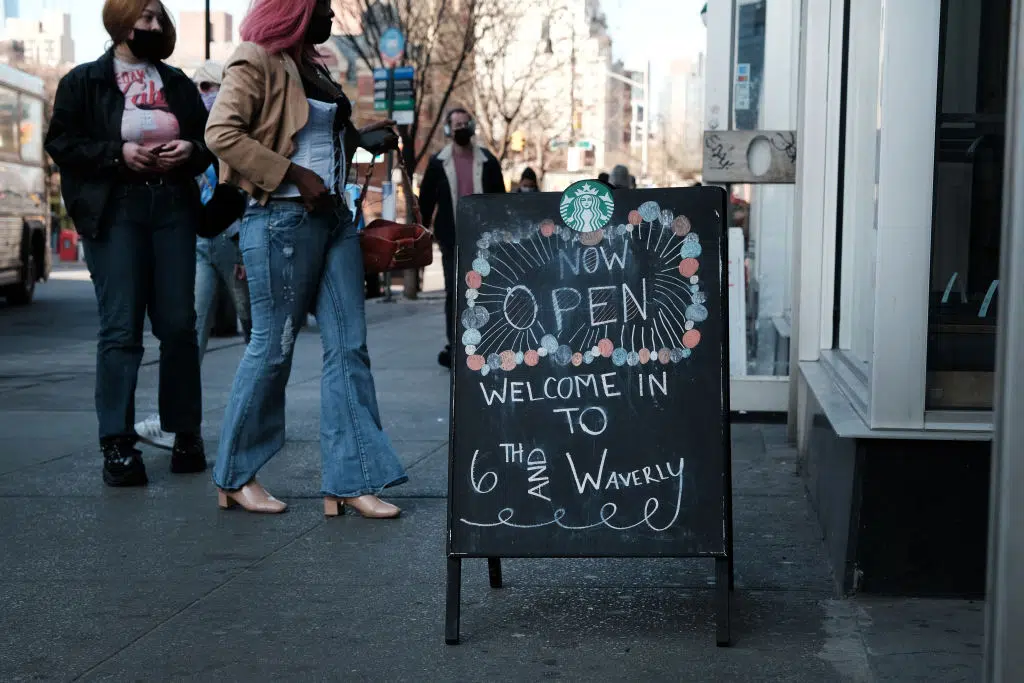 NOW
OPEN
WELCOME IN
TO
6TH AND WAVERLY